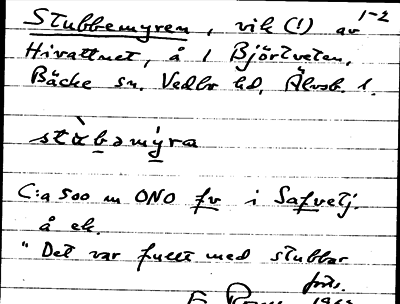 1-2
Stubbemyren, vik (!) av
Hivattnet, å 1 Björtveten,
Bäcke sn. Vedbo hd, Älvsb. l.
stàbəmýra
C:a 500 m ONO fv i Safvetj.
å ek.
"Det var fullt med stubbar
forts.